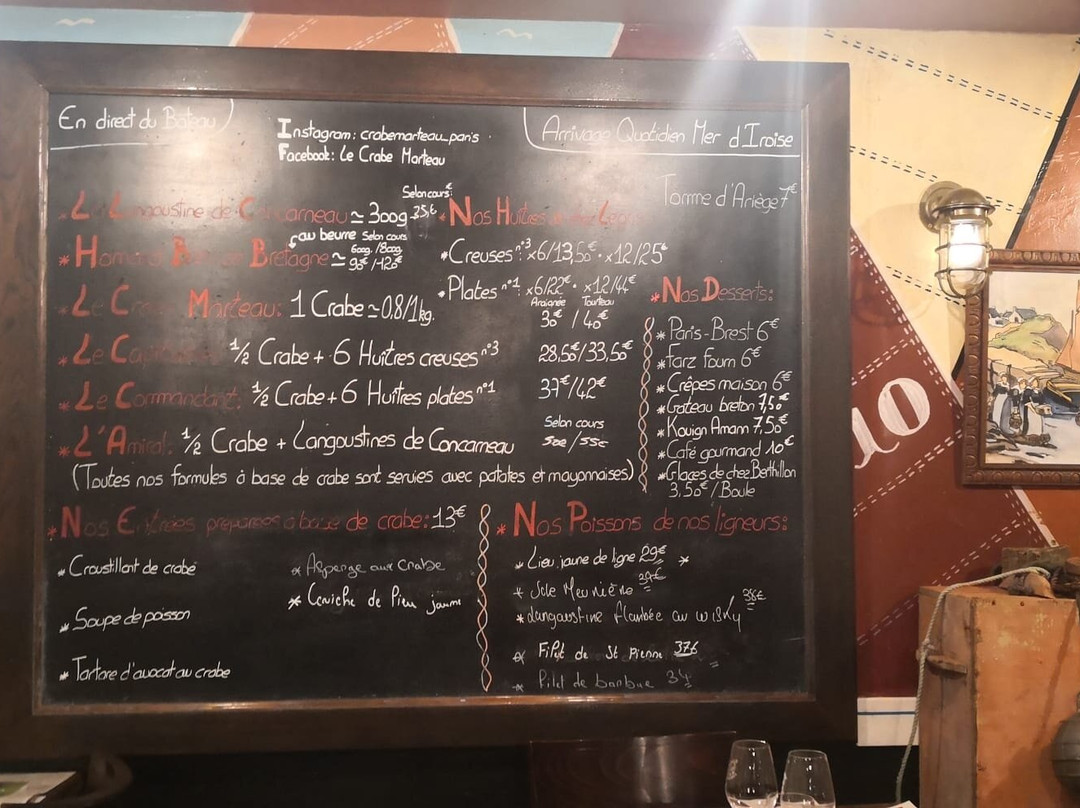 En direct du Bateau
Instagram: crabemarteau_paris
Facebook: Le Crabe Marteau
Arrivage Quotidien Mer d'Iroise
Tomme d'Ariège 7€
* La Langoustine de Concarneau ≃ 300g Selon cours 35,€
* Bretagne ≃ au beurre Selon cours 600g/800g
* Le Crabe Marteau: 1 Crabe ≃ 0.8/1kg. Araignée 30€ / Tourteau 40€
* Le Capitaine ½ Crabe + 6 Huîtres creuses n°3 28,50€/33,50€
* Le Commandant: ½ Crabe + 6 Huîtres plates n°1 37€/42€
* L'Amiral: ½ Crabe + Langoustines de Concarneau Selon cours 50€/55€
(Toutes nos formules à base de crabe sont servies avec patates et mayonnaises)
* Nos Huîtres
* Creuses n°3: x6/13,50€ • x12/25€
* Plates n°1: x6/22€ • x12/44€
* Nos Desserts:
* Paris-Brest 6€
* Tarz Fourn 6€
* Crêpes maison 6€
* Gateau breton 7,50€
* Kouign Amann 7,50€
* Café gourmand 10€
* Glaces de chez Berthillon
3,50€/Boule
* Nos Entrées préparées à base de crabe: 13€
* Croustillant de crabe
* Soupe de poisson
* Tartare d'avocat au crabe
* Asperge aux crabe
* Ceviche de Lieu jaune
* Nos Poissons de nos ligneurs:
* Lieu jaune de ligne 29€ *
* Sole Meunière
* Langoustine flambée au wisky 38€
* Filet de St Pierre 37€
* Filet de barbue 34
10